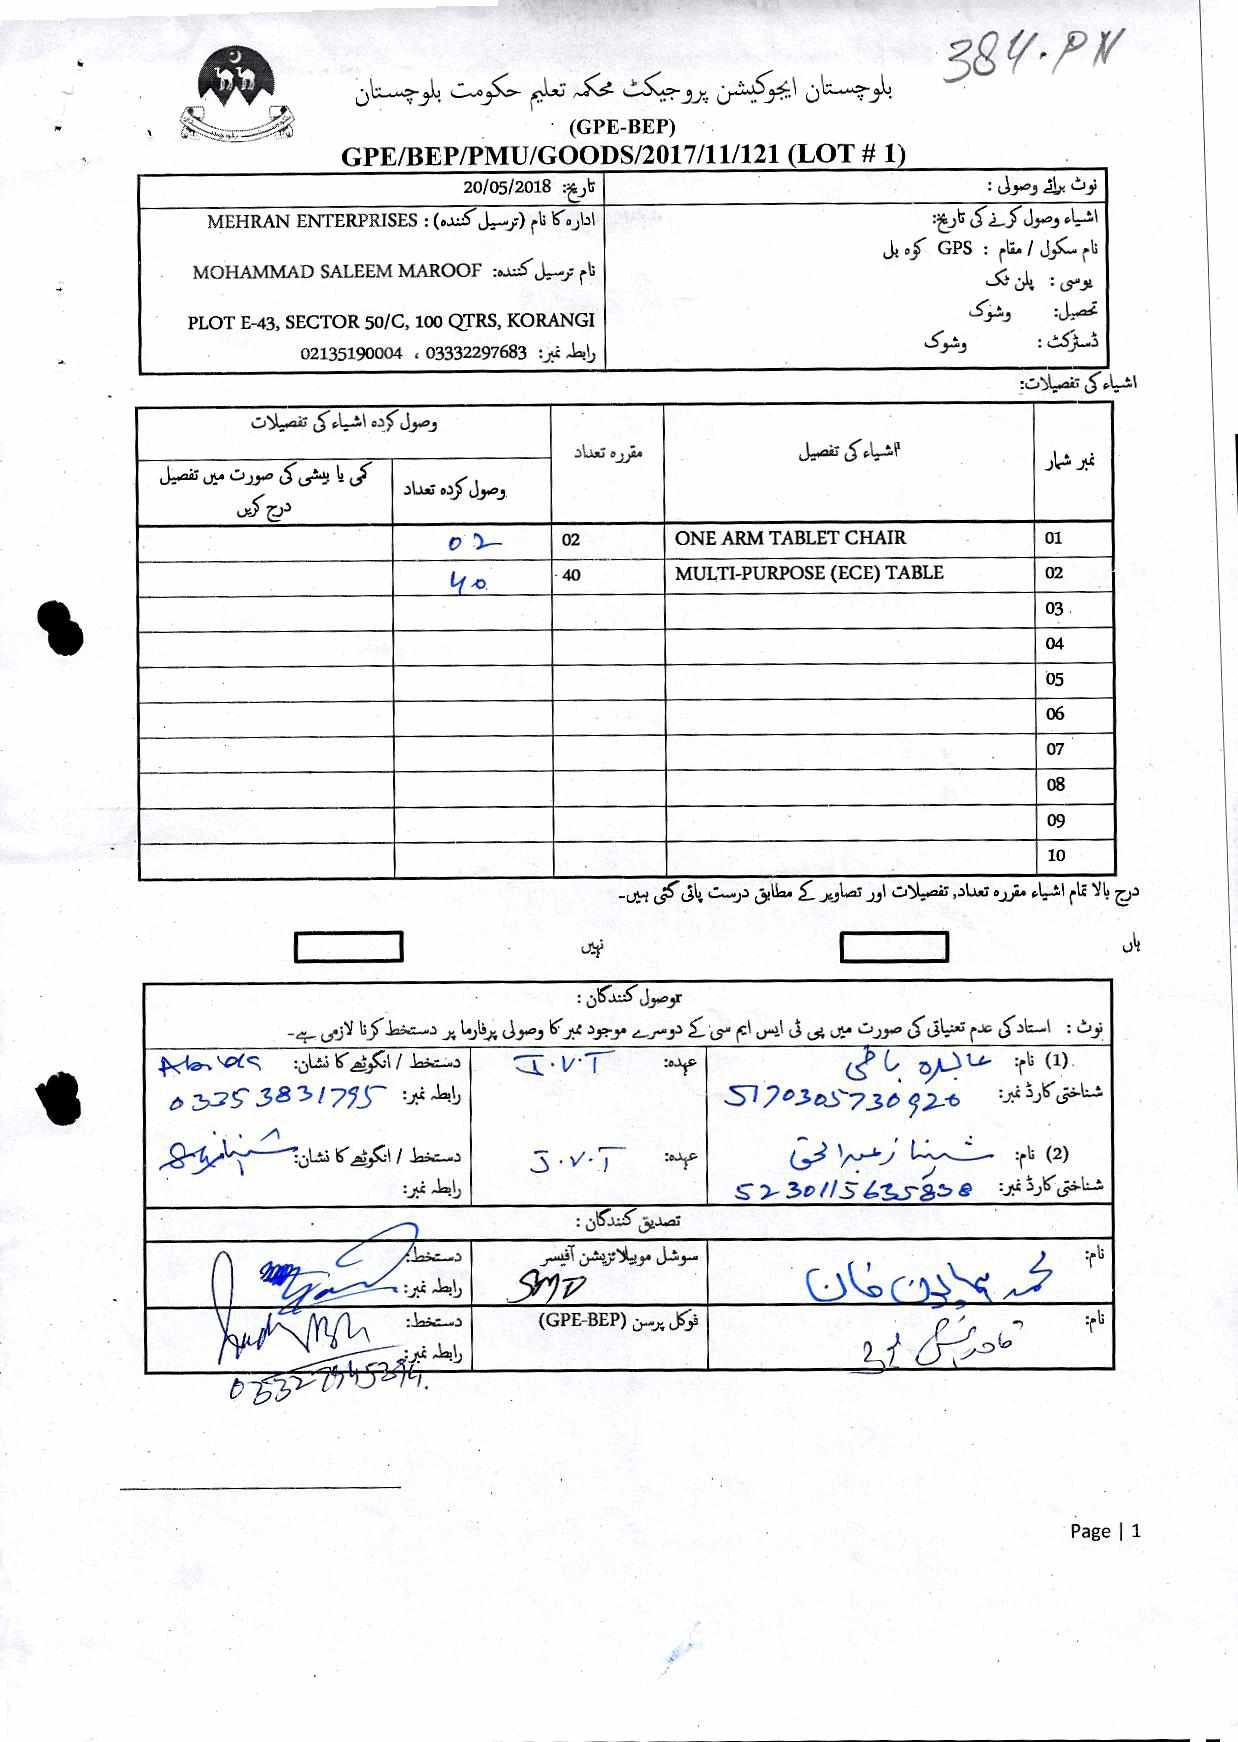 384.PN
بلوچستان ایجوکیشن پروجیکٹ محکمہ تعلیم حکومت بلوچستان
(GPE-BEP)
GPE/BEP/PMU/GOODS/2017/11/121 (LOT # 1)
نوٹ برائے وصولی :
تاریخ: 20/05/2018
اشیاء وصول کرنے کی تاریخ:
ادارہ کا نام (ترسیل کنندہ) : MEHRAN ENTERPRISES
نام سکول / مقام : GPS کوہ بل
نام ترسیل کنندہ: MOHAMMAD SALEEM MAROOF
یوسی : پلن ٹک
تحصیل: وشوک
PLOT E-43, SECTOR 50/C, 100 QTRS, KORANGI
ڈسٹرکٹ : وشوک
رابطہ نمبر: 03332297683 ، 02135190004
اشیاء کی تفصیلات:
نمبر شمار اشیاء کی تفصیل مقررہ تعداد وصول کردہ اشیاء کی تفصیلات
وصول کردہ تعداد کمی یا بیشی کی صورت میں تفصیل درج کریں
01 ONE ARM TABLET CHAIR 02 02
02 MULTI-PURPOSE (ECE) TABLE 40 40
03
04
05
06
07
08
09
10
درج بالا تمام اشیاء مقررہ تعداد, تفصیلات اور تصاویر کے مطابق درست پائی گئی ہیں۔
ہاں نہیں
وصول کنندگان :
نوٹ : استاد کی عدم تعیناتی کی صورت میں پی ٹی ایس ایم سی کے دوسرے موجود ممبر کا وصولی پرفارما پر دستخط کرنا لازمی ہے۔
(1) نام: عابدہ عہدہ: J.V.T دستخط / انگوٹھے کا نشان:
شناختی کارڈ نمبر: 5170305730920 رابطہ نمبر: 03353831795
(2) نام: شہناز عبدالحق عہدہ: J.V.T دستخط / انگوٹھے کا نشان:
شناختی کارڈ نمبر: 5230115635838 رابطہ نمبر:
تصدیق کنندگان :
نام: محمد ہمایون خان سوشل موبیلائزیشن آفیسر دستخط:
SMO رابطہ نمبر:
نام: قادر بخش فوکل پرسن (GPE-BEP) دستخط:
رابطہ نمبر:
Page | 1